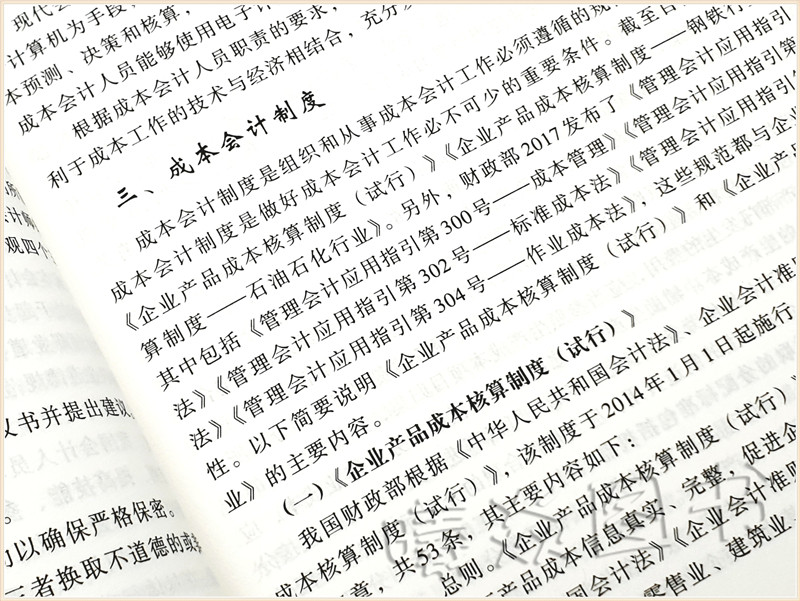 现代会
计算机为手段,
本预测、决策和核算,
成本会计人员能够使用电子计
根据成本会计人员职责的要求,
利于成本工作的技术与经济相结合,充分
三、成本会计制度
成本会计制度是组织和从事成本会计工作必须遵循的规
成本会计制度是做好成本会计工作必不可少的重要条件。截至目
《企业产品成本核算制度(试行)》《企业产品成本核算制度——钢铁行
算制度——石油石化行业》。另外,财政部2017发布了《管理会计应用指引
其中包括《管理会计应用指引第300号——成本管理》《管理会计应用指引第
法》《管理会计应用指引第302号——标准成本法》《管理会计应用指引第
法》《管理会计应用指引第304号——作业成本法》,这些规范都与企
性。以下简要说明《企业产品成本核算制度(试行)》和《企业产
业》的主要内容。
(一)《企业产品成本核算制度(试行)》
我国财政部根据《中华人民共和国会计法》、企业会计准则
成本核算制度(试行)》,该制度于2014年1月1日起施行
章,共53条,其主要内容如下:
总则。《企业产品成本核算制度(试行)》
产品成本信息真实、完整,促进企
国会计法》《企业会计准则
零售业、建筑业
观四个
义书并提出建议
可以确保严格保密。
三者换取不道德的或
晴众图书